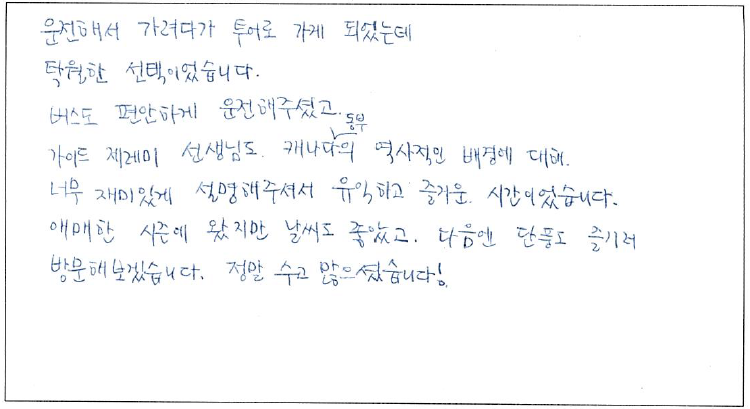 운전해서 가려다가 투어로 가게 되었는데
탁월한 선택이었습니다.
버스도 편안하게 운전해주셨고.
동부
가이드 제레미 선생님도. 캐나다의 역사적인 배경에 대해.
너무 재미있게 설명해주셔서 유익하고 즐거운. 시간이었습니다.
애매한 시즌에 왔지만 날씨도 좋았고. 다음엔 단풍도 즐기러
방문해보겠습니다. 정말 수고 많으셨습니다!